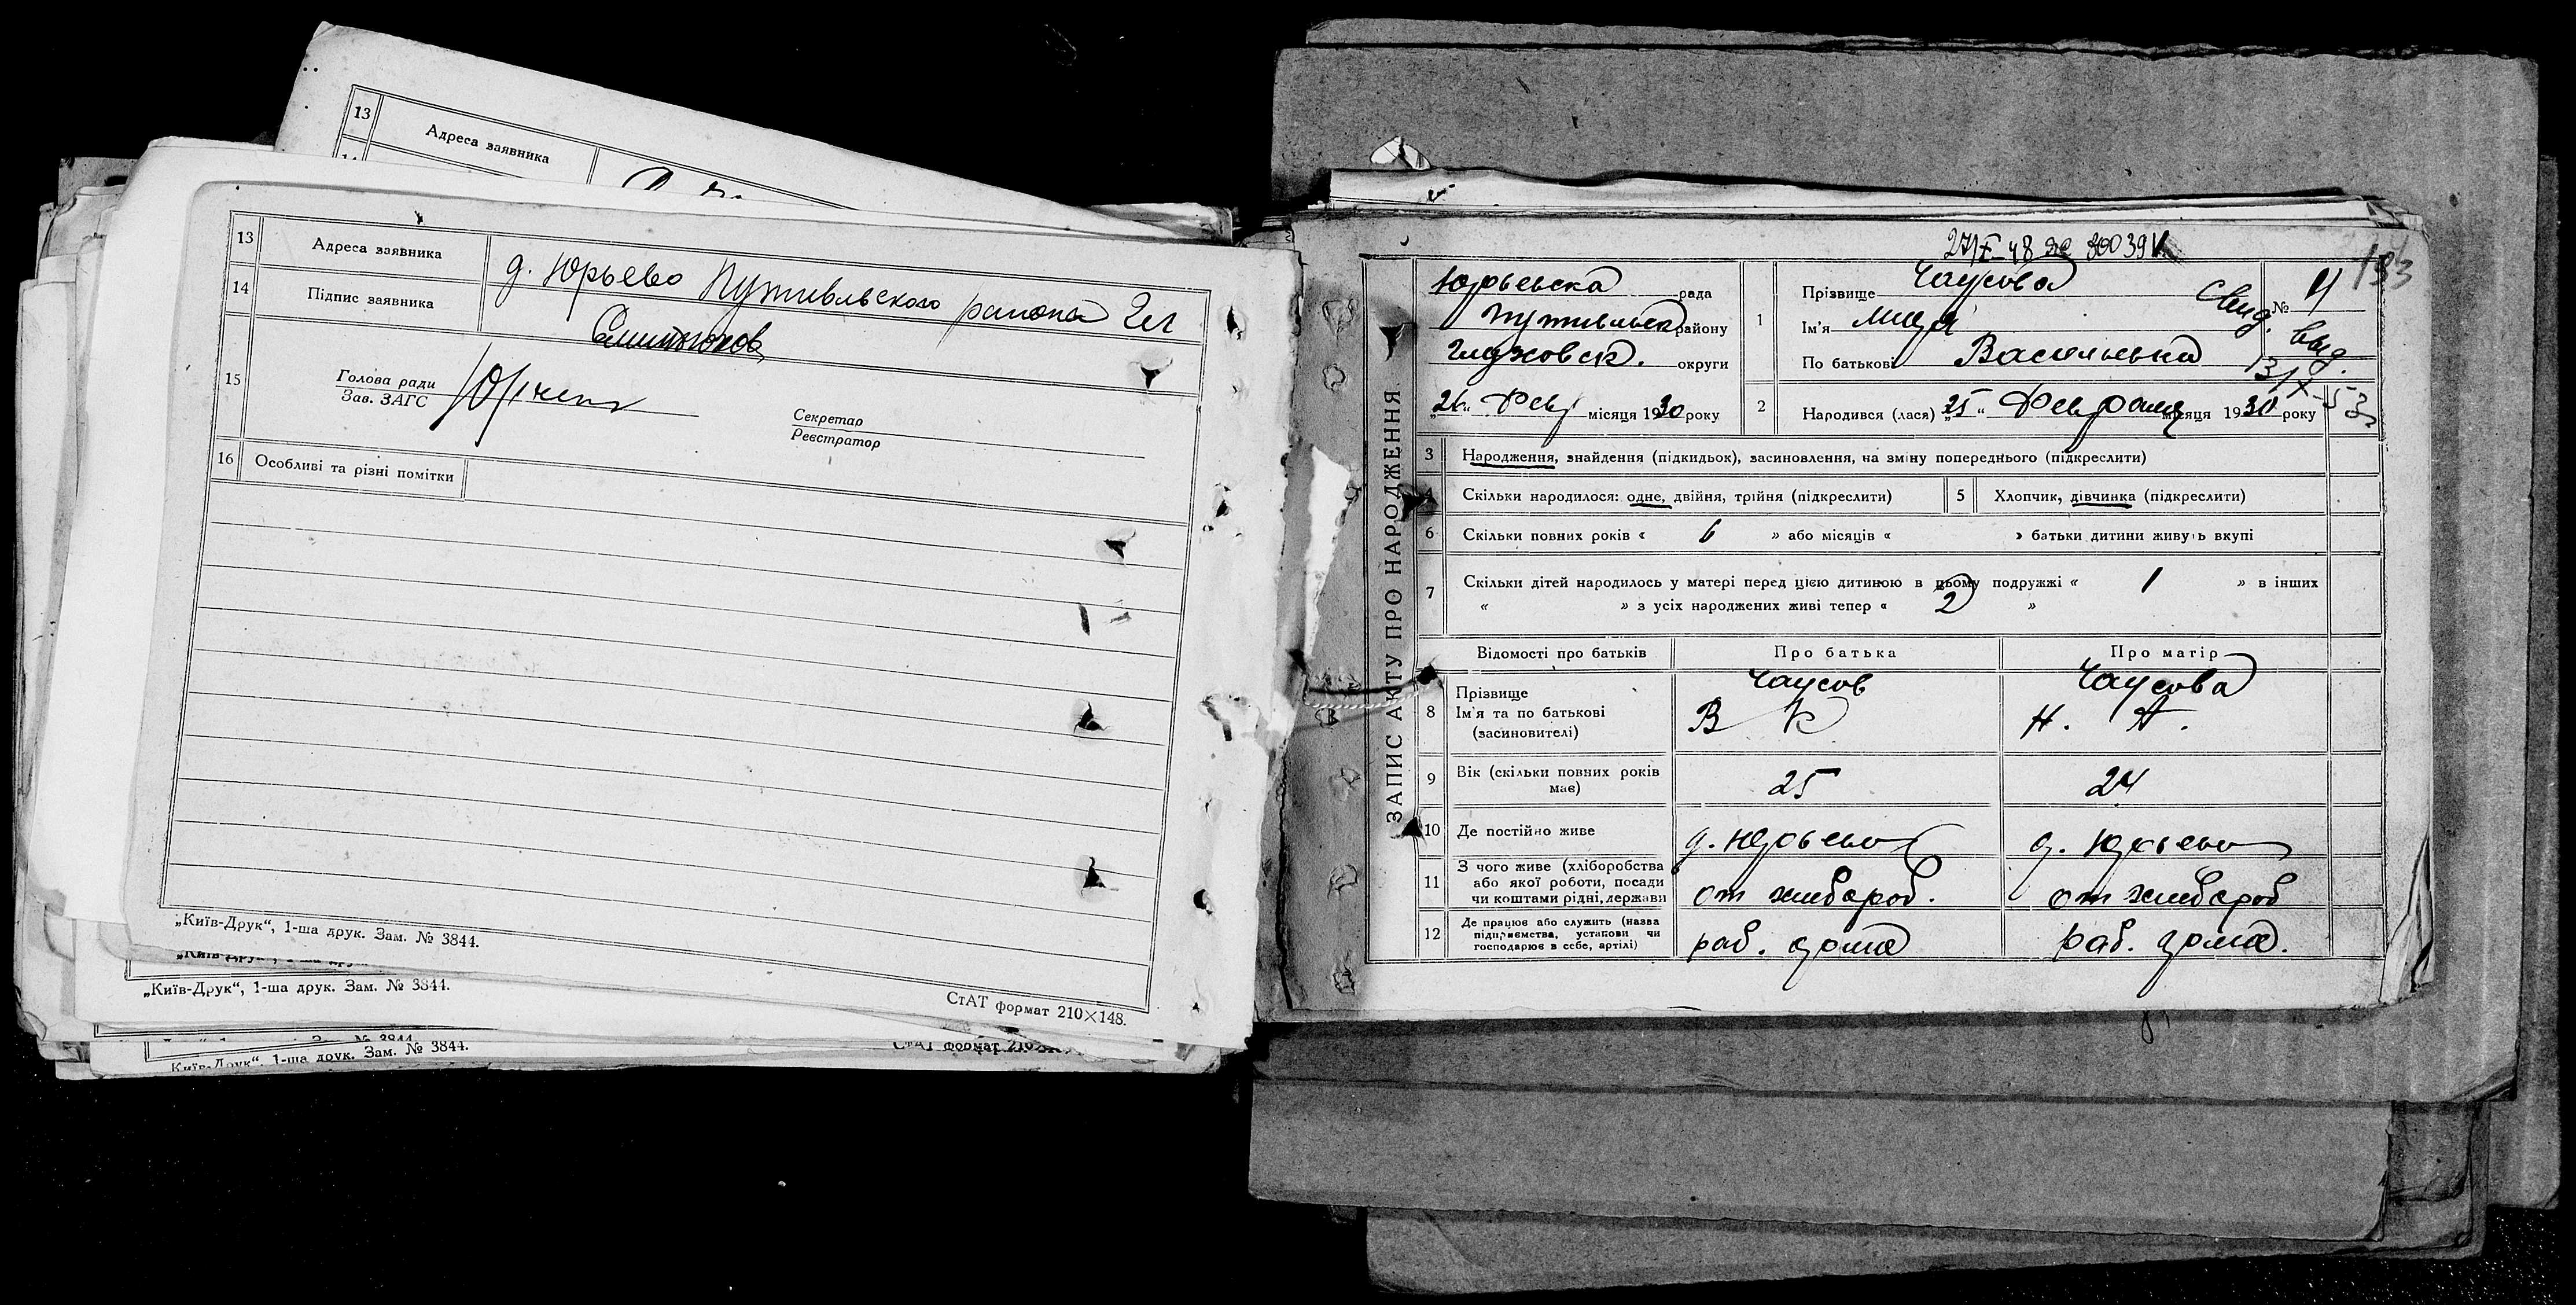 13 Адреса заявника
13 Адреса заявника д. Юрьево Путивльского района
14 Підпис заявника
15 Голова ради
Зав. ЗАГС
Секретар
Реєстратор
16 Особливі та різні помітки
„Київ-Друк“, 1-ша друк. Зам. № 3844.
СтАТ формат 210×148.
„Київ-Друк“, 1-ша друк. Зам. № 3844.
Київ-Друк“, 1-ша друк. Зам. № 3844.
СтАТ формат 210×148
ЗАПИС АКТУ ПРО НАРОДЖЕННЯ
193
Юрьевска рада
Путивльск району
Глуховск. округи
„26“ Февр місяця 1930 року
1 Прізвище Чаусова
Ім'я
По батькові Васильевна
№ 4
Свид. выд.
2 Народився (лася) „25“ Февраля місяця 1930 року
3 Народження, знайдення (підкидьок), засиновлення, на зміну попереднього (підкреслити)
4 Скільки народилося: одне, двійня, трійня (підкреслити)
5 Хлопчик, дівчинка (підкреслити)
6 Скільки повних років « 6 » або місяців « » батьки дитини живуть вкупі
7 Скільки дітей народилось у матері перед цією дитиною в цьому подружжі « 1 » в інших
« » з усіх народжених живі тепер « 2 »
Відомості про батьків Про батька Про матір
8 Прізвище Чаусов Чаусова
Ім'я та по батькові В К Н. А.
(засиновителі)
9 Вік (скільки повних років має) 25 24
10 Де постійно живе д. Юрьево д. Юрьево
11 З чого живе (хліборобства
або якої роботи, посади
чи коштами рідні, держави от хлебороб. от хлебороб
12 Де працює або служить (назва
підприємства, установи чи
господарює в себе, артілі) раб. дома раб. дома.